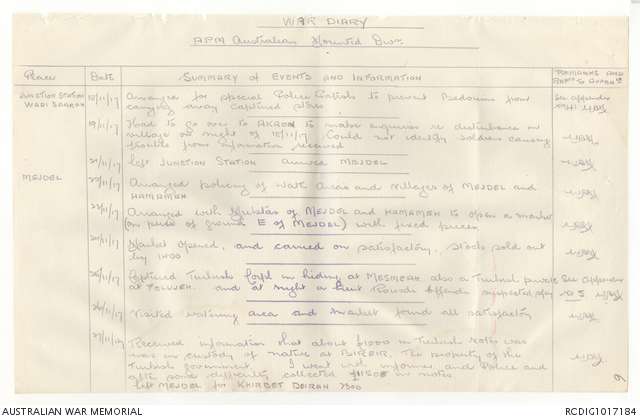 WAR DIARY
APM Australian Mounted Divn
Place Date SUMMARY OF EVENTS AND INFORMATION REMARKS AND
JUNCTION STATION 18/11/17 Arranged for special Police Patrols to prevent Bedouins from See appendix
WADI SARRAR carrying away captured
19/11/17 Had to go over to AKRON to make enquiries re disturbance in
village on night of 18/11/17. Could not identify soldiers causing
trouble from information received
21/11/17 Left JUNCTION STATION arrived MEJDEL
MEJDEL 22/11/17 Arranged policing of Water Areas and villages of MEJDEL and
HAMAMEH
23/11/17 Arranged with of MEJDEL and HAMAMEH to open a market
(on piece of ground E of MEJDEL) with fixed prices
24/11/17 Market opened, and carried on satisfactory. Stocks sold out
by 1400
25/11/17 Captured Turkish in hiding at MESMEAH also a Turkish private See appendix
at FELUJEH. and at night a
26/11/17 Visited watering area and market found all satisfactory
27/11/17 Received information that about £1000 in Turkish notes was
was in custody of native at BUREIR. The property of the
Turkish government. I went with informer and Police and
after some difficulty collected in notes
left MEJDEL for KHIRBET DEIRAN 2300
AUSTRALIAN WAR MEMORIAL RCDIG1017184